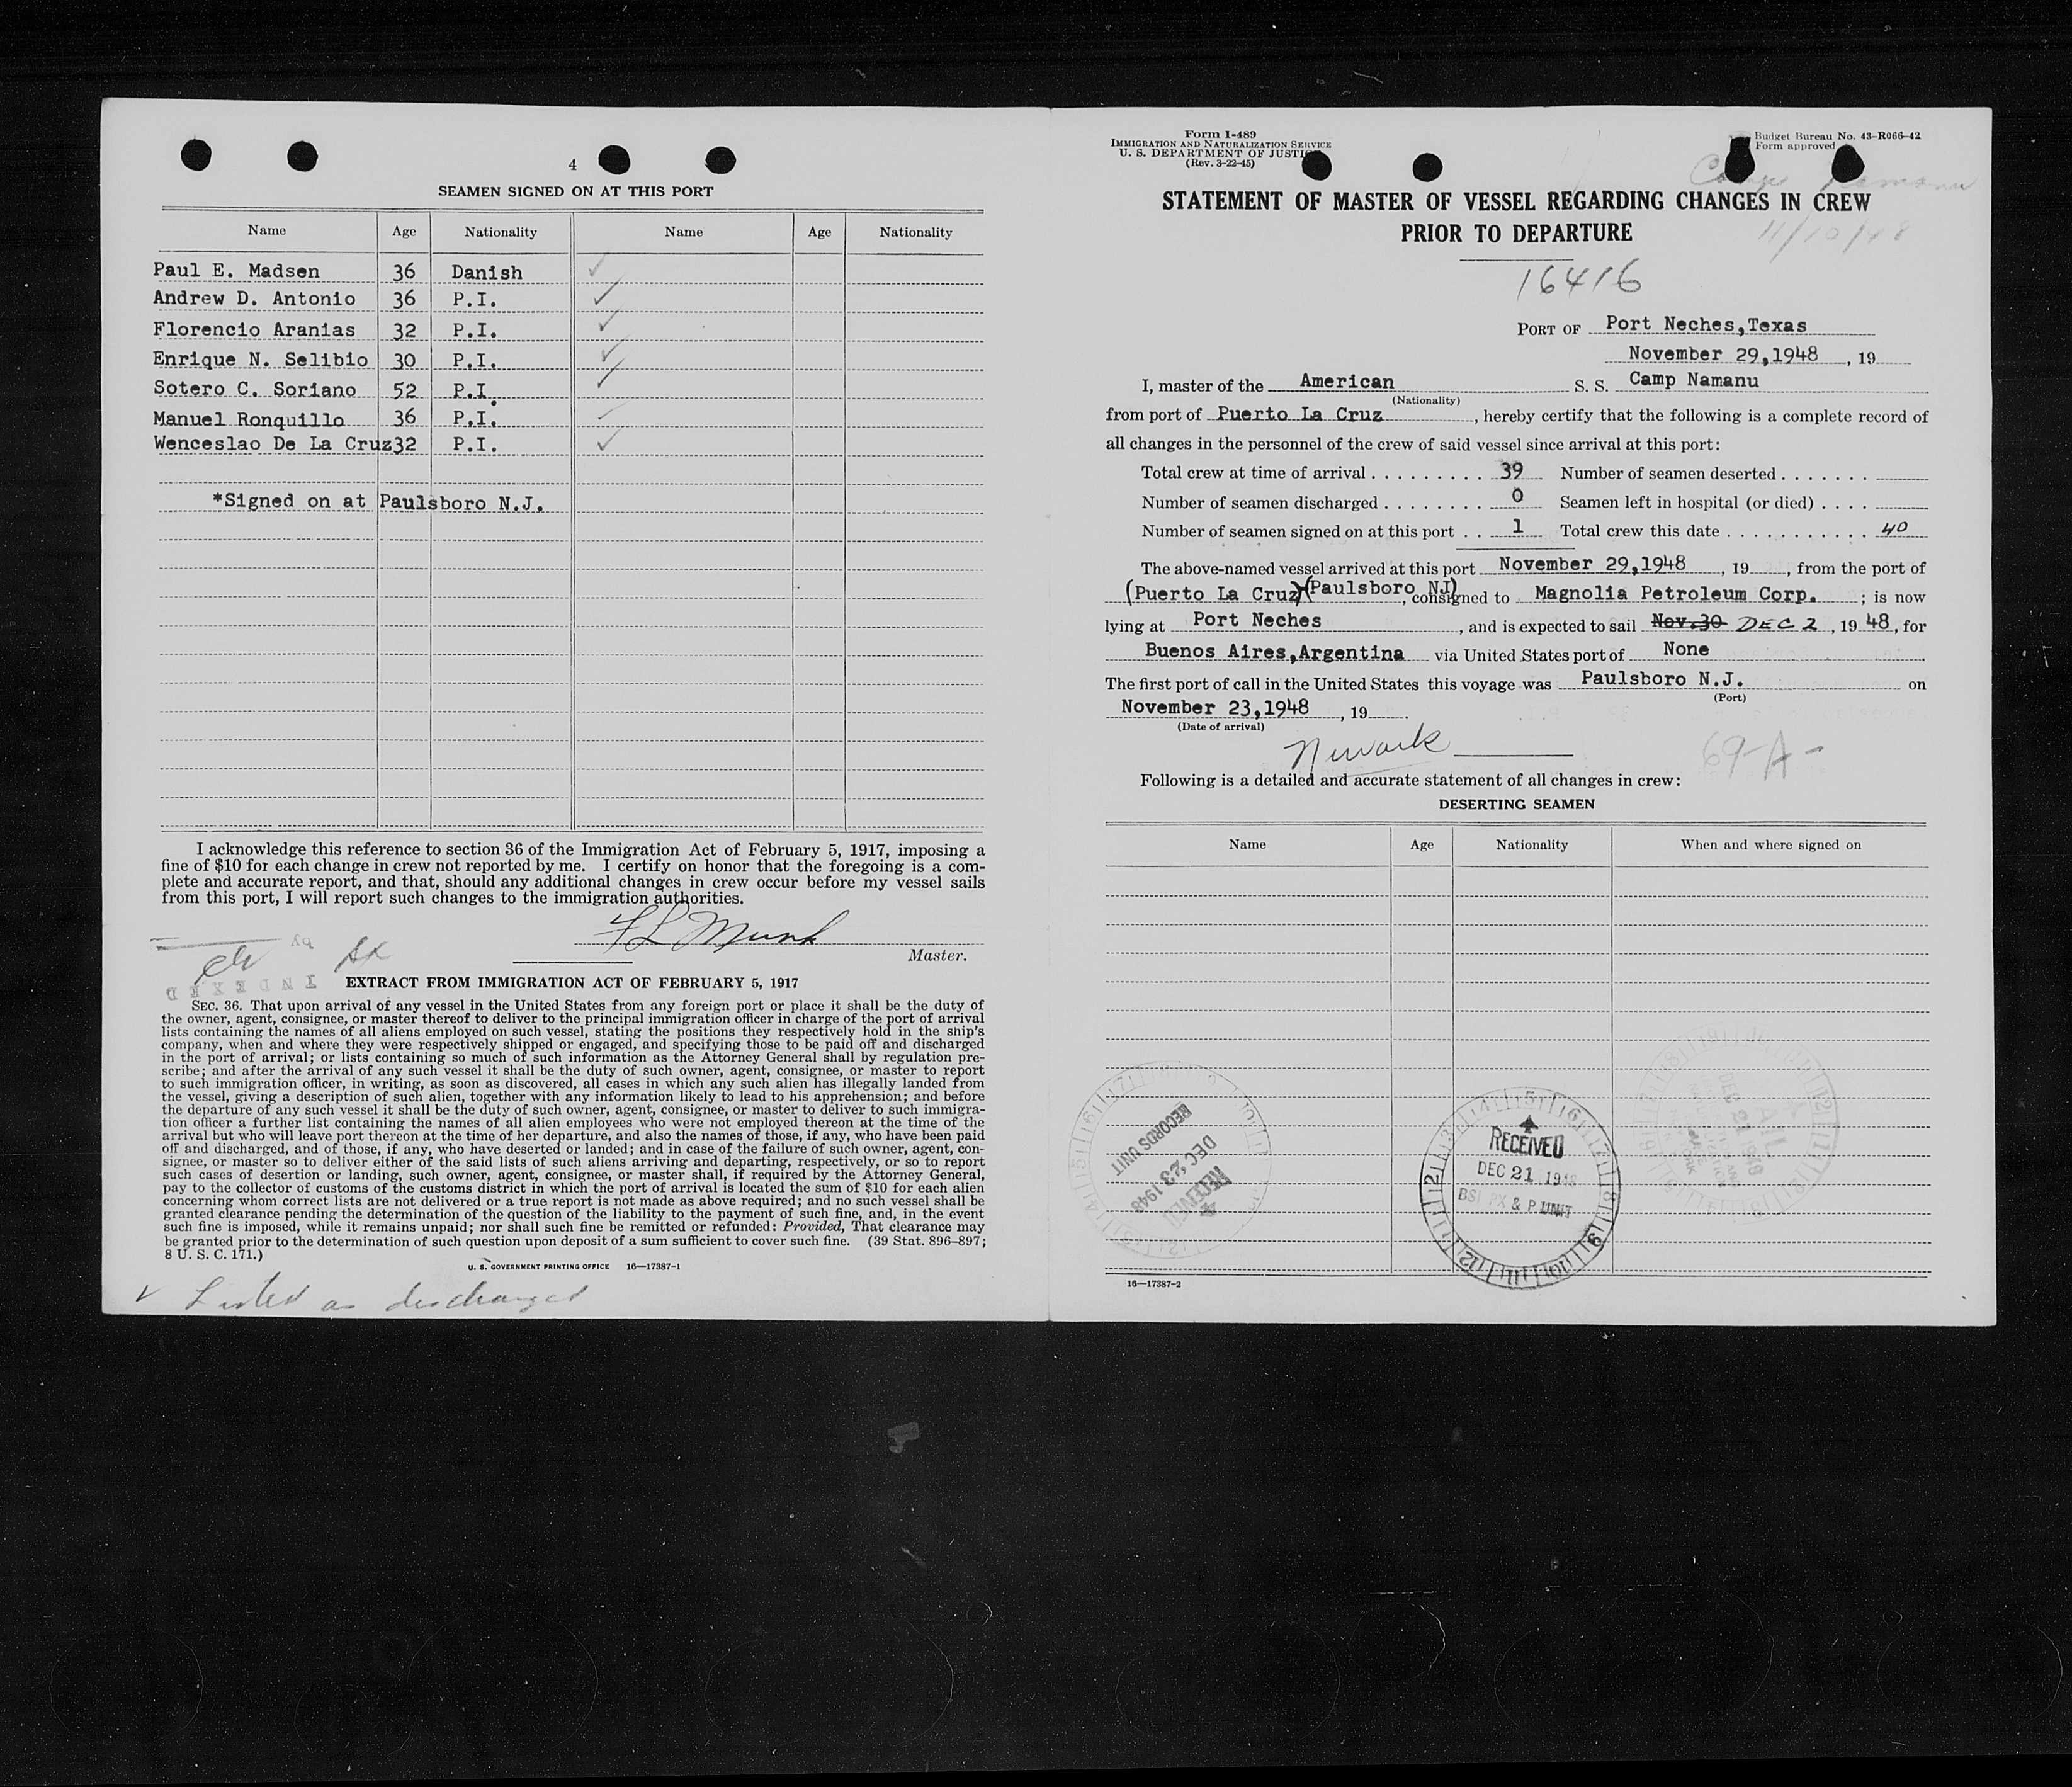 4
SEAMEN SIGNED ON AT THIS PORT
Name Age Nationality Name Age Nationality
Paul E. Madsen 36 Danish ✓
Andrew D. Antonio 36 P.I. ✓
Florencio Aranias 32 P.I. ✓
Enrique N. Selibio 30 P.I. ✓
Sotero C. Soriano 52 P.I. ✓
Manuel Ronquillo 36 P.I. ✓
Wenceslao De La Cruz 32 P.I. ✓
*Signed on at Paulsboro N.J.
I acknowledge this reference to section 36 of the Immigration Act of February 5, 1917, imposing a
fine of $10 for each change in crew not reported by me. I certify on honor that the foregoing is a com-
plete and accurate report, and that, should any additional changes in crew occur before my vessel sails
from this port, I will report such changes to the immigration authorities.
F L Munk
Master.
by
INDEXED
EXTRACT FROM IMMIGRATION ACT OF FEBRUARY 5, 1917
SEC. 36. That upon arrival of any vessel in the United States from any foreign port or place it shall be the duty of
the owner, agent, consignee, or master thereof to deliver to the principal immigration officer in charge of the port of arrival
lists containing the names of all aliens employed on such vessel, stating the positions they respectively hold in the ship's
company, when and where they were respectively shipped or engaged, and specifying those to be paid off and discharged
in the port of arrival; or lists containing so much of such information as the Attorney General shall by regulation pre-
scribe; and after the arrival of any such vessel it shall be the duty of such owner, agent, consignee, or master to report
to such immigration officer, in writing, as soon as discovered, all cases in which any such alien has illegally landed from
the vessel, giving a description of such alien, together with any information likely to lead to his apprehension; and before
the departure of any such vessel it shall be the duty of such owner, agent, consignee, or master to deliver to such immigra-
tion officer a further list containing the names of all alien employees who were not employed thereon at the time of the
arrival but who will leave port thereon at the time of her departure, and also the names of those, if any, who have been paid
off and discharged, and of those, if any, who have deserted or landed; and in case of the failure of such owner, agent, con-
signee, or master so to deliver either of the said lists of such aliens arriving and departing, respectively, or so to report
such cases of desertion or landing, such owner, agent, consignee, or master shall, if required by the Attorney General,
pay to the collector of customs of the customs district in which the port of arrival is located the sum of $10 for each alien
concerning whom correct lists are not delivered or a true report is not made as above required; and no such vessel shall be
granted clearance pending the determination of the question of the liability to the payment of such fine, and, in the event
such fine is imposed, while it remains unpaid; nor shall such fine be remitted or refunded: Provided, That clearance may
be granted prior to the determination of such question upon deposit of a sum sufficient to cover such fine. (39 Stat. 896-897;
8 U. S. C. 171.)
U. S. GOVERNMENT PRINTING OFFICE 16—17387-1
✓ Listed as discharged
Form I-489
IMMIGRATION AND NATURALIZATION SERVICE
U. S. DEPARTMENT OF JUSTICE
(Rev. 3-22-45)
Budget Bureau No. 43-R066-42
Form approved
Camp Namanu
11/10/48
STATEMENT OF MASTER OF VESSEL REGARDING CHANGES IN CREW
PRIOR TO DEPARTURE
16416
PORT OF Port Neches,Texas
November 29,1948 , 19
I, master of the American S. S. Camp Namanu
(Nationality)
from port of Puerto La Cruz , hereby certify that the following is a complete record of
all changes in the personnel of the crew of said vessel since arrival at this port:
Total crew at time of arrival . . . . . . . . . 39 Number of seamen deserted . . . . . . .
Number of seamen discharged . . . . . . . . 0 Seamen left in hospital (or died) . . . .
Number of seamen signed on at this port . . 1 Total crew this date . . . . . . . . . . . 40
The above-named vessel arrived at this port November 29,1948 , 19 , from the port of
(Puerto La Cruz)(Paulsboro NJ) , consigned to Magnolia Petroleum Corp. ; is now
lying at Port Neches , and is expected to sail Nov.30 DEC 2 , 19 48, for
Buenos Aires,Argentina via United States port of None
The first port of call in the United States this voyage was Paulsboro N.J. on
(Port)
November 23,1948 , 19 .
(Date of arrival)
Newark
69-A-
Following is a detailed and accurate statement of all changes in crew:
DESERTING SEAMEN
Name Age Nationality When and where signed on
RECEIVED
DEC 23 1948
RECORDS UNIT
RECEIVED
DEC 21 1948
& P UNIT
DEC 21 1948
16—17387-2